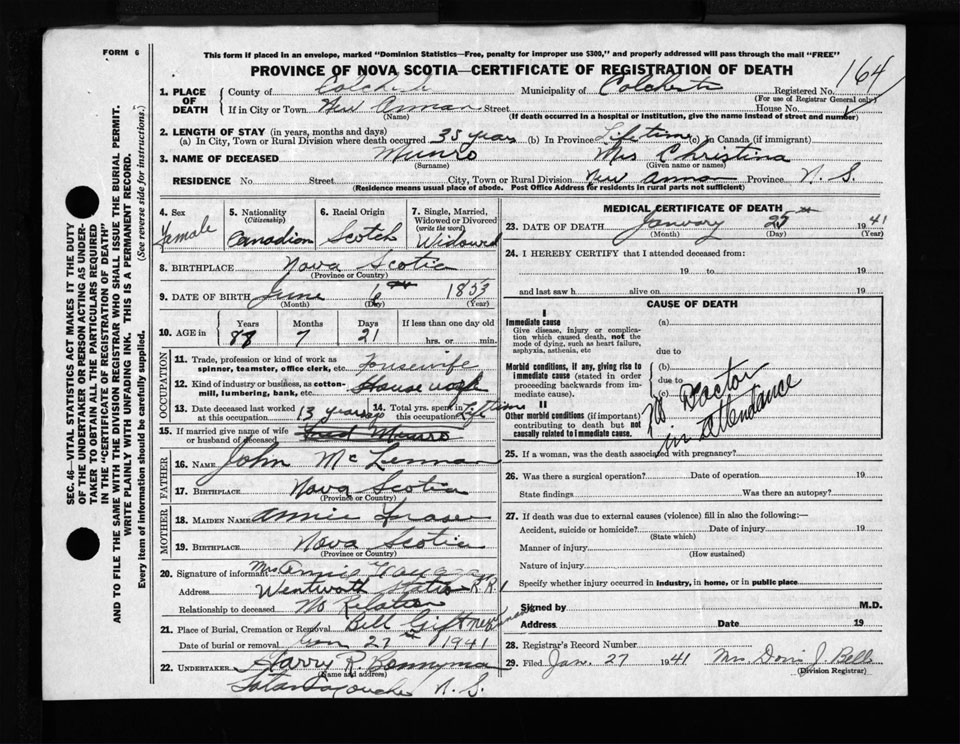 FORM 6
This form if placed in an envelope, marked "Dominion Statistics—Free, penalty for improper use $300," and properly addressed will pass through the mail "FREE"
PROVINCE OF NOVA SCOTIA—CERTIFICATE OF REGISTRATION OF DEATH
164
1. PLACE OF DEATH County of Municipality of Colchester Registered No.
(For use of Registrar General only)
If in City or Town New Annan Street House No.
(Name) (If death occurred in a hospital or institution, give the name instead of street and number)
2. LENGTH OF STAY (in years, months and days)
(a) In City, Town or Rural Division where death occurred 35 years (b) In Province Lifetime (c) In Canada (if immigrant)
3. NAME OF DECEASED Munro Mrs Christina
(Surname) (Given name or names)
RESIDENCE No. Street City, Town or Rural Division New Annan Province N. S.
(Residence means usual place of abode. Post Office Address for residents in rural parts not sufficient)
4. Sex Female
5. Nationality (Citizenship) Canadian
6. Racial Origin Scotch
7. Single, Married, Widowed or Divorced (write the word) Widowed
8. BIRTHPLACE Nova Scotia
(Province or Country)
9. DATE OF BIRTH June 6th 1853
(Month) (Day) (Year)
10. AGE in Years Months Days If less than one day old
88 7 21 hrs. or min.
OCCUPATION
11. Trade, profession or kind of work as spinner, teamster, office clerk, etc. Housewife
12. Kind of industry or business, as cotton-mill, lumbering, bank, etc. House work
13. Date deceased last worked at this occupation 13 years ago
14. Total yrs. spent in this occupation Lifetime
15. If married give name of wife or husband of deceased Fred Munro
FATHER
16. NAME John McLennan
17. BIRTHPLACE Nova Scotia
(Province or Country)
MOTHER
18. MAIDEN NAME Annie Fraser
19. BIRTHPLACE Nova Scotia
(Province or Country)
20. Signature of informant Mrs Annie
Address Wentworth Station R.R. 1
Relationship to deceased No Relation
21. Place of Burial, Cremation or Removal Bell
Date of burial or removal Jan 27 1941
22. UNDERTAKER Harry R. Bonnyman
(Name and address)
Tatamagouche N. S.
MEDICAL CERTIFICATE OF DEATH
23. DATE OF DEATH January 25th 1941
(Month) (Day) (Year)
24. I HEREBY CERTIFY that I attended deceased from:
19 to 19
and last saw h alive on 19
CAUSE OF DEATH
I
Immediate cause (a)
Give disease, injury or complication which caused death, not the mode of dying, such as heart failure, asphyxia, asthenia, etc
due to
Morbid conditions, if any, giving rise to immediate cause (stated in order proceeding backwards from immediate cause). (b)
due to
(c)
II
Other morbid conditions (if important) contributing to death but not causally related to immediate cause.
No Doctor
in attendance
25. If a woman, was the death associated with pregnancy?
26. Was there a surgical operation? Date of operation 19
State findings Was there an autopsy?
27. If death was due to external causes (violence) fill in also the following:—
Accident, suicide or homicide? Date of injury 19
(State which)
Manner of injury
(How sustained)
Nature of injury
Specify whether injury occurred in industry, in home, or in public place
Signed by M.D.
Address Date 19
28. Registrar's Record Number
29. Filed Jan. 27 1941 Mrs. J. Bell
(Division Registrar)
SEC. 46—VITAL STATISTICS ACT MAKES IT THE DUTY
OF THE UNDERTAKER OR PERSON ACTING AS UNDER-
TAKER TO OBTAIN ALL THE PARTICULARS REQUIRED
IN THE "CERTIFICATE OF REGISTRATION OF DEATH"
AND TO FILE THE SAME WITH THE DIVISION REGISTRAR WHO SHALL ISSUE THE BURIAL PERMIT.
WRITE PLAINLY WITH UNFADING INK. THIS IS A PERMANENT RECORD.
Every item of information should be carefully supplied. (See reverse side for instructions.)